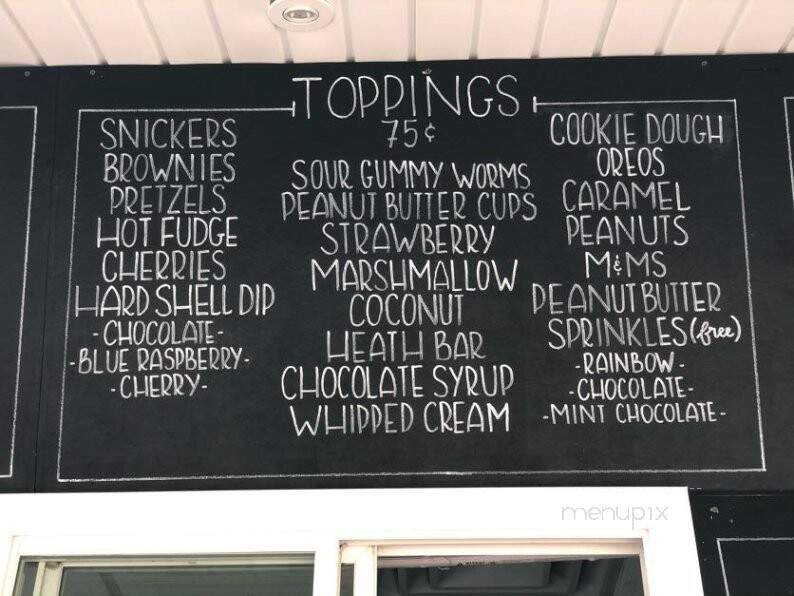 TOPPINGS
75¢
SNICKERS
BROWNIES
PRETZELS
HOT FUDGE
CHERRIES
HARD SHELL DIP
-CHOCOLATE-
-BLUE RASPBERRY-
-CHERRY-
SOUR GUMMY WORMS
PEANUT BUTTER CUPS
STRAWBERRY
MARSHMALLOW
COCONUT
HEATH BAR
CHOCOLATE SYRUP
WHIPPED CREAM
COOKIE DOUGH
OREOS
CARAMEL
PEANUTS
M&MS
PEANUT BUTTER
SPRINKLES (free)
-RAINBOW-
-CHOCOLATE-
-MINT CHOCOLATE-
menupix